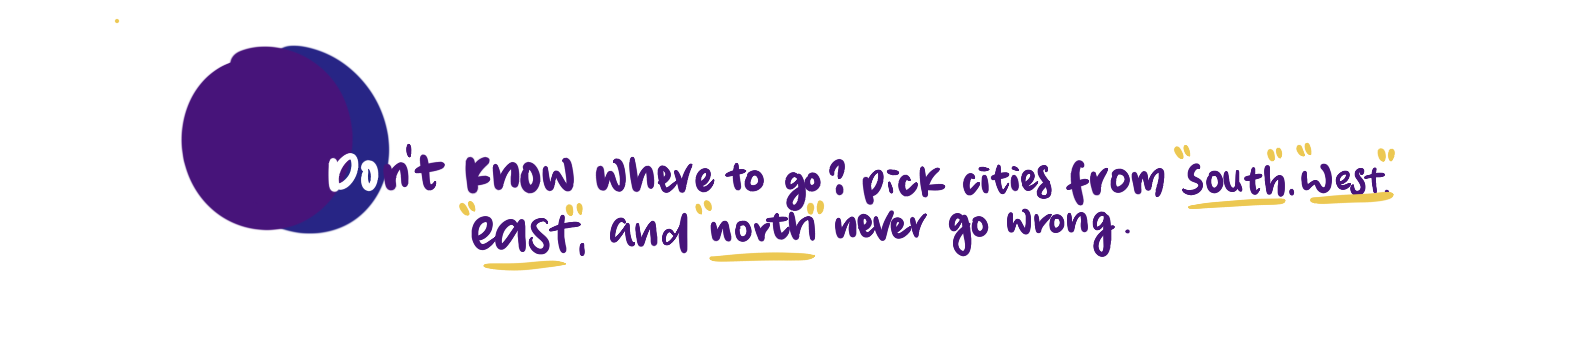 Don't know where to go? pick cities from "South". "West."
"east", and "north" never go wrong.